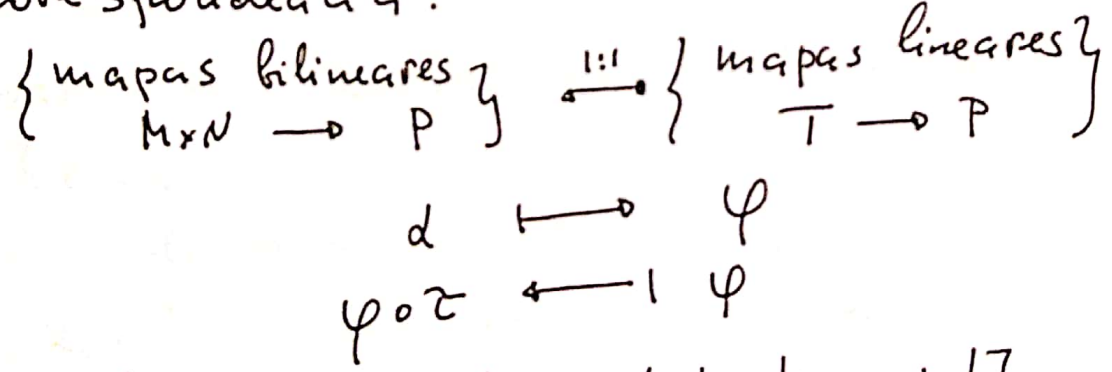 { mapas bilineares } 1:1 ⟷ { mapas lineares }
M×N ⟶ P T ⟶ P
α ⟼ φ
φ∘τ ⟵| φ
17